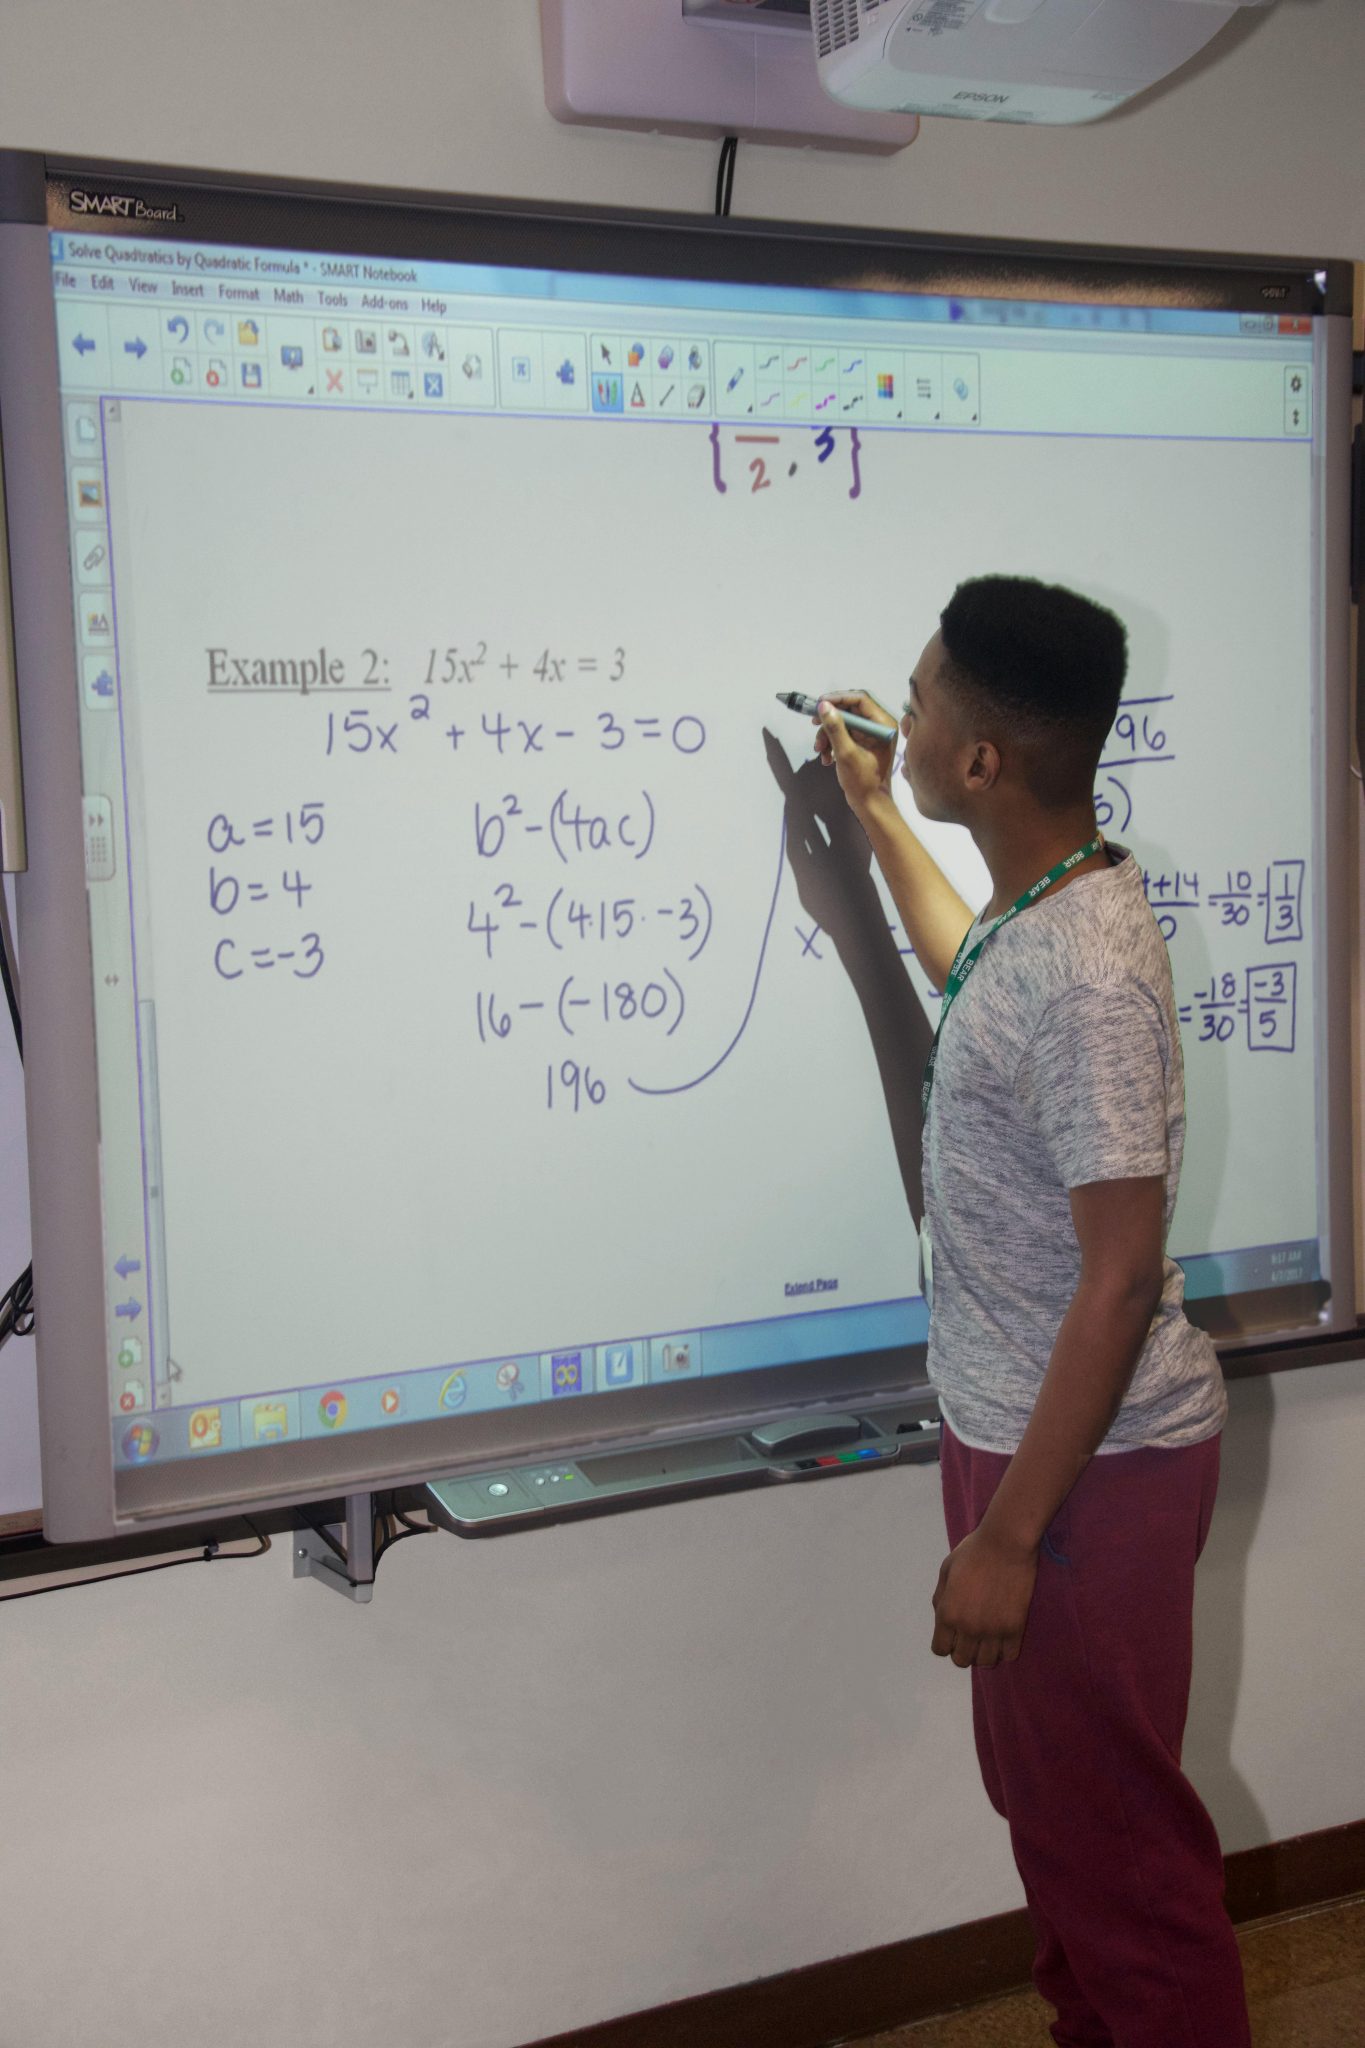 EPSON
SMART Board
Solve Quadtratics by Quadratic Formula * - SMART Notebook
File Edit View Insert Format Math Tools Add-ons Help
{ — 2 , 3 }
Example 2: 15x² + 4x = 3
15x² + 4x - 3 = 0
a = 15
b = 4
c = -3
b² - (4ac)
4² - (4·15·-3)
16 - (-180)
196
96
5)
x
+14 = 10/30 = 1/3
= -18/30 = -3/5
BEAR
BEAR
BEAR
BEAR
Extend Page
9:17 AM
4/7/2017